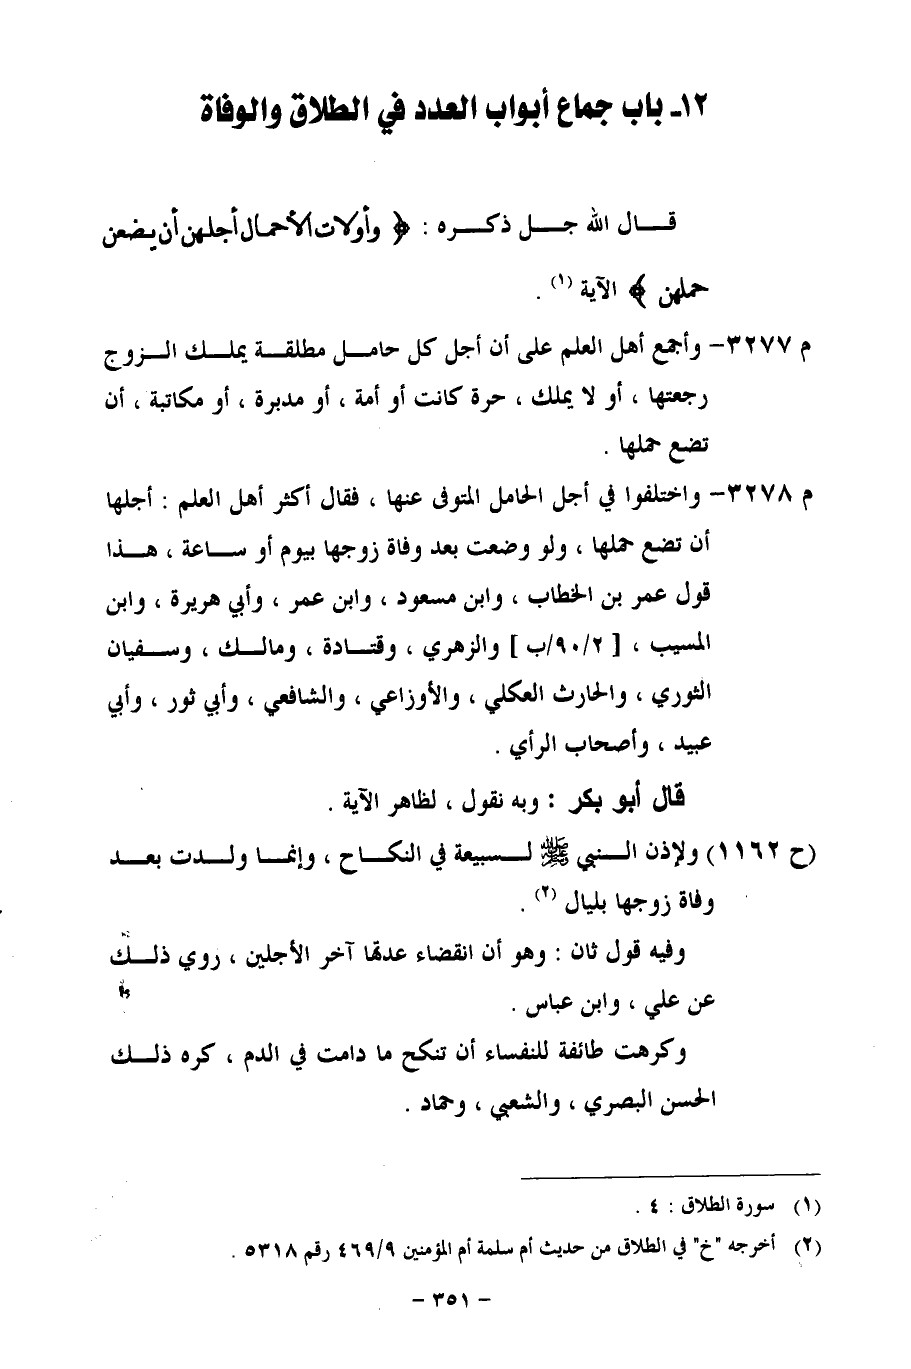 ١٢ـ باب جماع أبواب العدد في الطلاق والوفاة
قال الله جل ذكره : ﴿ وأولات الأحمال أجلهن أن يضعن
حملهن ﴾ الآية (١) .
م ٣٢٧٧– وأجمع أهل العلم على أن أجل كل حامل مطلقة يملك الزوج
رجعتها ، أو لا يملك ، حرة كانت أو أمة ، أو مدبرة ، أو مكاتبة ، أن
تضع حملها .
م ٣٢٧٨– واختلفوا في أجل الحامل المتوفى عنها ، فقال أكثر أهل العلم : أجلها
أن تضع حملها ، ولو وضعت بعد وفاة زوجها بيوم أو ساعة ، هذا
قول عمر بن الخطاب ، وابن مسعود ، وابن عمر ، وأبي هريرة ، وابن
المسيب ، [ ٢/٩٠/ب ] والزهري ، وقتادة ، ومالك ، وسفيان
الثوري ، والحارث العكلي ، والأوزاعي ، والشافعي ، وأبي ثور ، وأبي
عبيد ، وأصحاب الرأي .
قال أبو بكر : وبه نقول ، لظاهر الآية .
(ح ١١٦٢) ولإذن النبي ﷺ لسبيعة في النكاح ، وإنما ولدت بعد
وفاة زوجها بليال (٢) .
وفيه قول ثان : وهو أن انقضاء عدتها آخر الأجلين ، روي ذلك
عن علي ، وابن عباس .
وكرهت طائفة للنفساء أن تنكح ما دامت في الدم ، كره ذلك
الحسن البصري ، والشعبي ، وحماد .
(١) سورة الطلاق : ٤ .
(٢) أخرجه "خ" في الطلاق من حديث أم سلمة أم المؤمنين ٤٦٩/٩ رقم ٥٣١٨ .
– ٣٥١ –